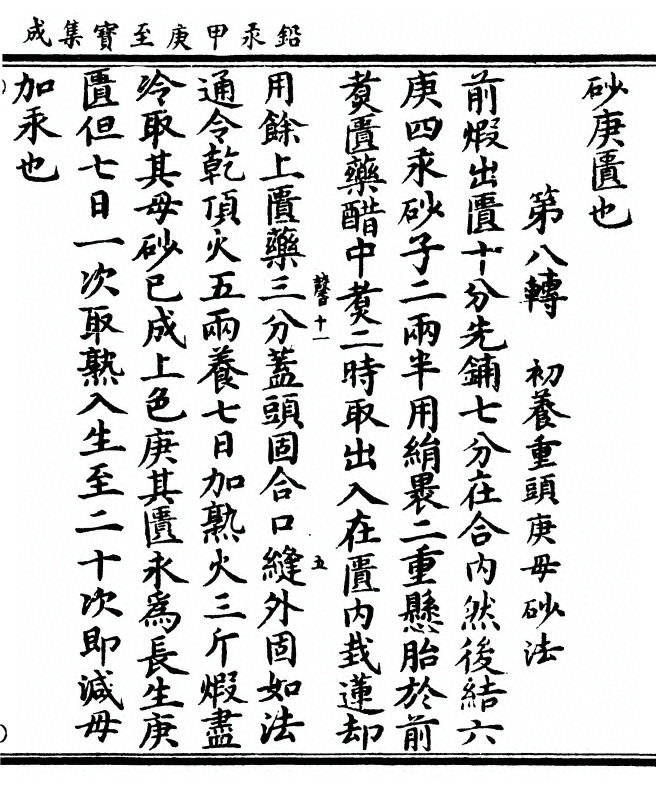 鉛汞甲庚至寶集成
砂庚匱也
第八轉　初養重頭庚母砂法
前煆出匱十分先鋪七分在合内然後結六
庚四汞砂子二兩半用絹褁二重懸胎於前
煑匱藥醋中煑二時取出入在匱内栽蓮却
十一　五
用餘上匱藥三分蓋頭固合口縫外固如法
通令乾頂火五兩養七日加熟火三斤煆盡
冷取其母砂已成上色庚其匱永爲長生庚
匱但七日一次取熟入生至二十次即減母
加汞也